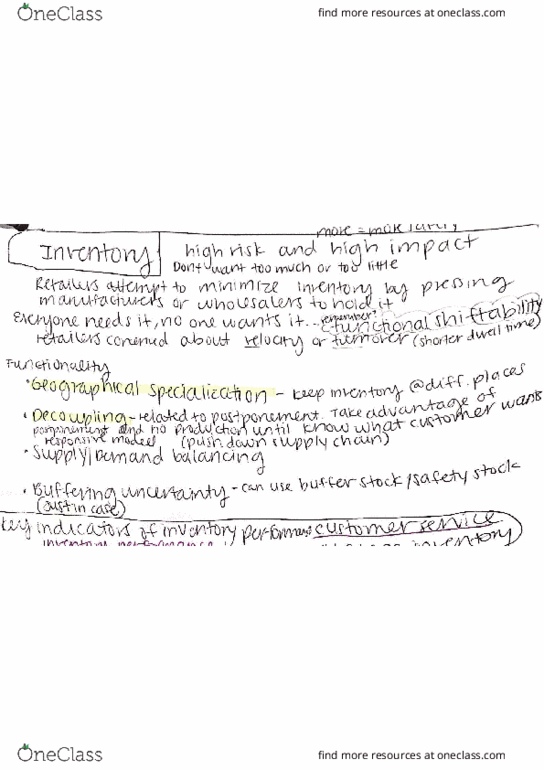 OneClass
find more resources at oneclass.com
Inventory high risk and high impact
Don't want too much or too little
Retailers attempt to minimize inventory by pressing
manufacturers or wholesalers to hold it
Everyone needs it, no one wants it... remember? functional shiftability
retailers concerned about velocity or turnover (shorter dwell time)
Functionality
• Geographical specialization - keep inventory @ diff. places
• Decoupling - related to postponement. Take advantage of
postponement and no production until know what customer wants
responsive model (push down supply chain)
• Supply/Demand balancing
• Buffering uncertainty - can use buffer stock/safety stock
(just in case)
key indicators of inventory performance customer service
inventory
OneClass
find more resources at oneclass.com